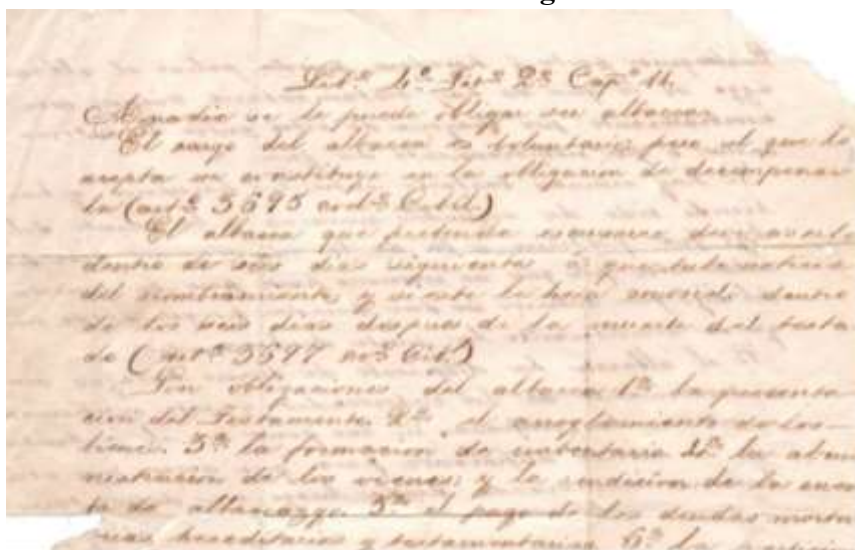 Lib.º 4.º Tit.º 2.º Cap.º 11.
A nadie se le puede obligar ser albacea
El cargo del albacea es voluntario, pero el que lo
acepta se constituye en la obligacion de decempeñar
lo (art.º 3695 cod.º Cibil)
El albacea que pretenda escusarse
dentro de seis dias siguientes á que tubo noticia
del nombramiento y si este le era conocido dentro
de los seis dias despues de la muerte del testa
de (art.º 3697 Cibil)
Son obligaciones del albacea 1.ª la presenta
cion del Testamento. 2.ª el arreglamiento de los
bienes. 3.ª la formacion de inventario 4.ª la admi
nistracion de los vienes y la rendicion de la cuen
ta de albaceazgo. 5.ª el pago de las deudas mortu
orias hereditarias y testamentarias 6.ª la